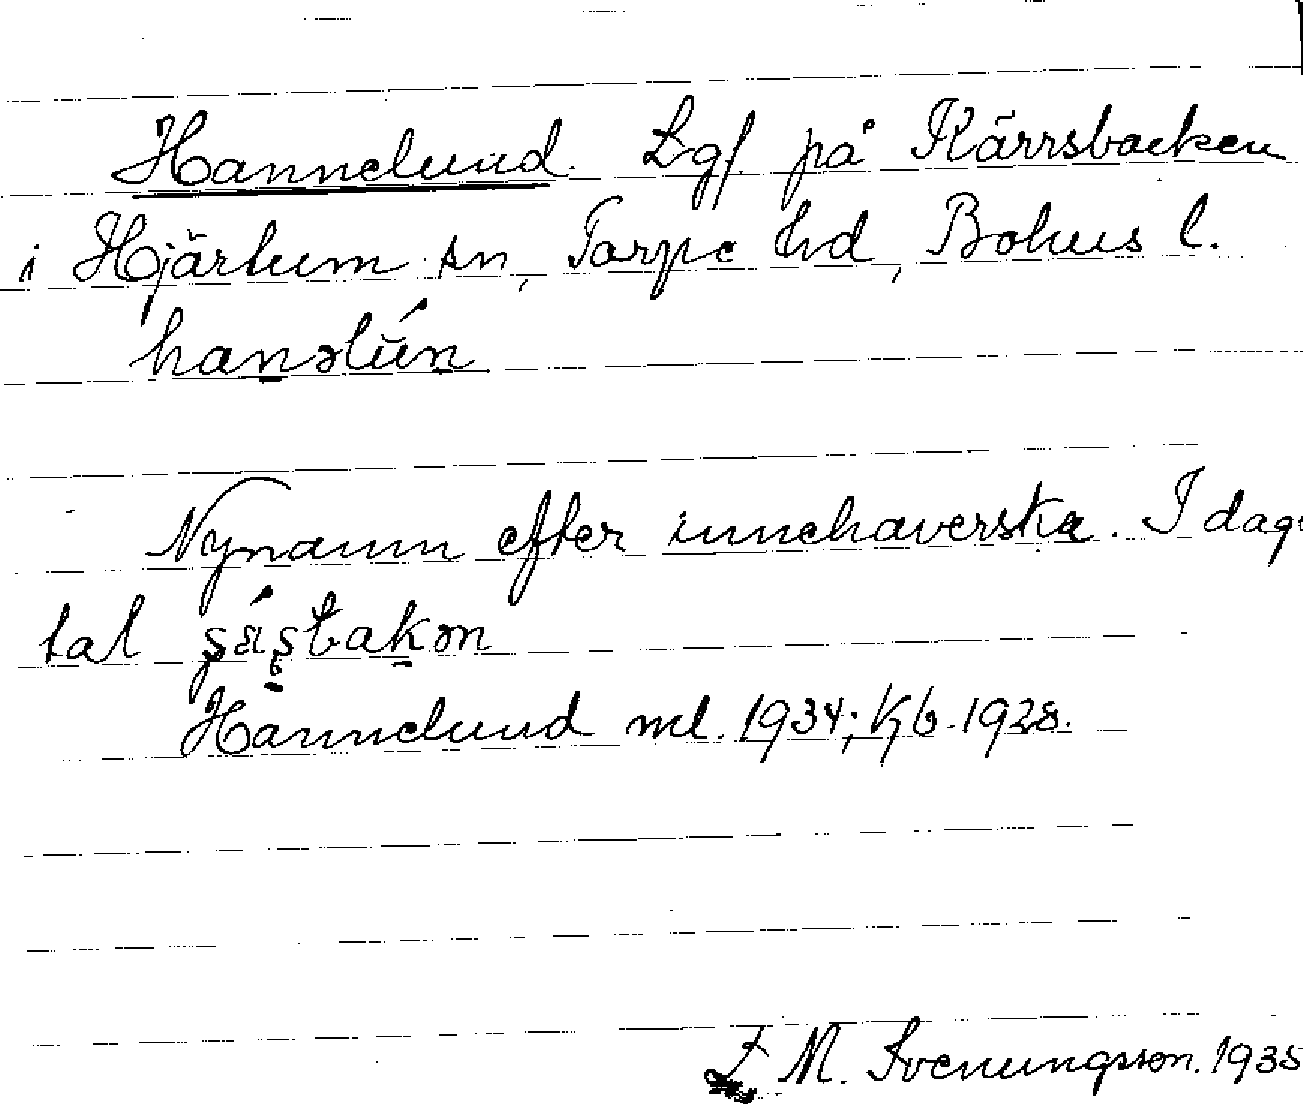 Hannelund. Lgf. på Kärrsbacken
i Hjärtum sn, Torpe hd, Bohus l.
hanəlún
Nynamn efter innehaverska. I dag
tal
Hannelund ml. 1934; Kb. 1928.
M. Svenungsson. 1935